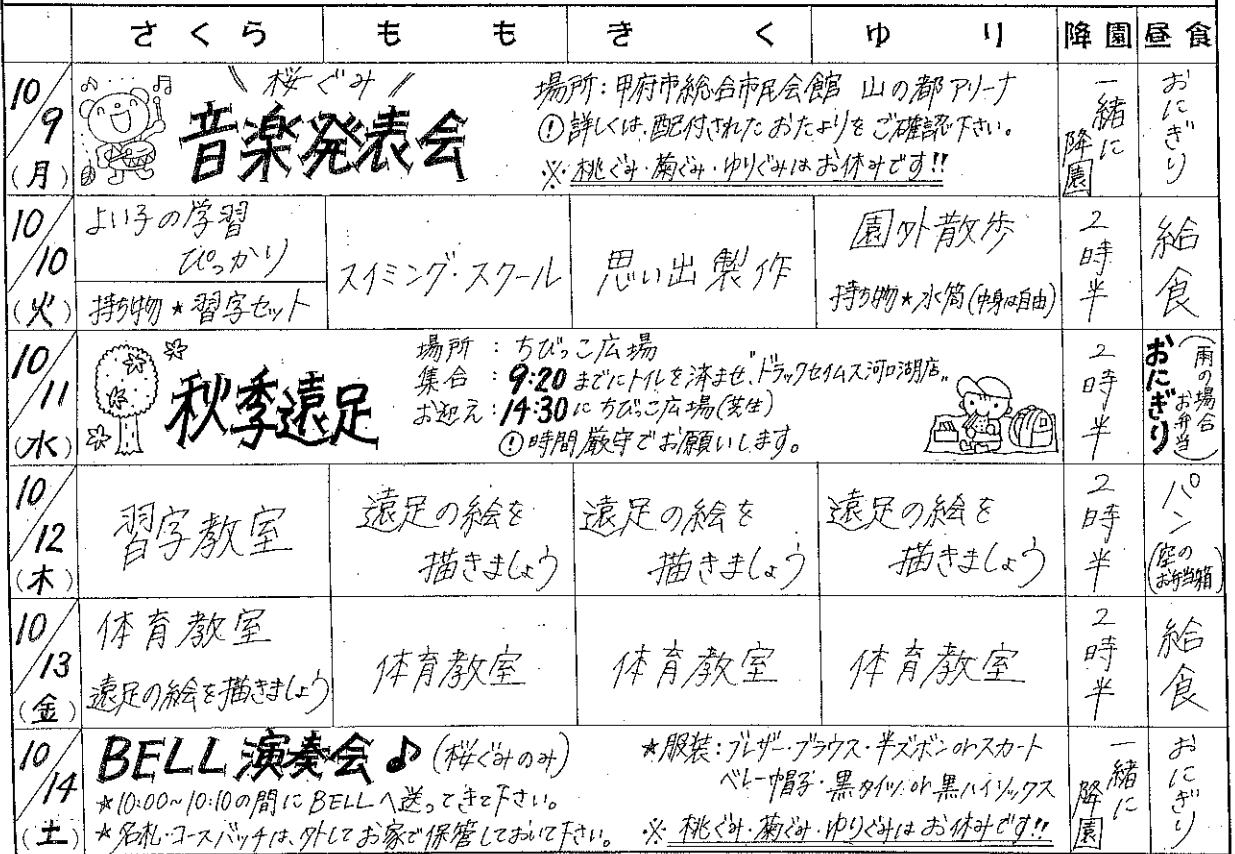 さくら もも きく ゆり 降園 昼食
10/9(月)
桜ぐみ
音楽発表会
場所:甲府市総合市民会館 山の都アリーナ
!詳しくは、配付されたおたよりをご確認下さい。
※桃ぐみ・菊ぐみ・ゆりぐみはお休みです!!
一緒に降園
おにぎり
10/10(火)
よい子の学習
ぴっかり
持ち物★習字セット
スイミング・スクール
思い出製作
園外散歩
持ち物★水筒(中身は自由)
2時半
給食
10/11(水)
秋季遠足
場所:ちびっこ広場
集合:9:20までにトイレを済ませ、"ドラックセイムス河口湖店"
お迎え:14:30にちびっこ広場(芝生)
!時間厳守でお願いします。
2時半
おにぎり
(雨の場合お弁当)
10/12(木)
習字教室
遠足の絵を
描きましょう
遠足の絵を
描きましょう
遠足の絵を
描きましょう
2時半
パン
(空のお弁当箱)
10/13(金)
体育教室
遠足の絵を描きましょう
体育教室
体育教室
体育教室
2時半
給食
10/14(土)
BELL演奏会♪(桜ぐみのみ)
★10:00~10:10の間にBELLへ送ってきて下さい。
★名札・コースバッチは、外してお家で保管しておいて下さい。
★服装:ブレザー・ブラウス・半ズボンorスカート
ベレー帽子・黒タイツor黒ハイソックス
※桃ぐみ・菊ぐみ・ゆりぐみはお休みです!!
一緒に降園
おにぎり